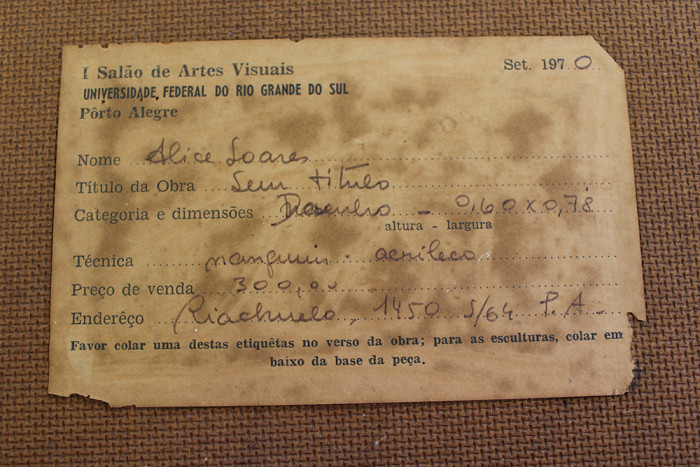 I Salão de Artes Visuais Set. 1970
UNIVERSIDADE FEDERAL DO RIO GRANDE DO SUL
Pôrto Alegre
Nome Alice Soares
Título da Obra Sem título
Categoria e dimensões Desenho - 0,60 x 0,78
altura - largura
Técnica nanquim - acrílico
Preço de venda 300,00
Enderêço Riachuelo, 1450 s/64 P.A.
Favor colar uma destas etiquêtas no verso da obra; para as esculturas, colar em
baixo da base da peça.